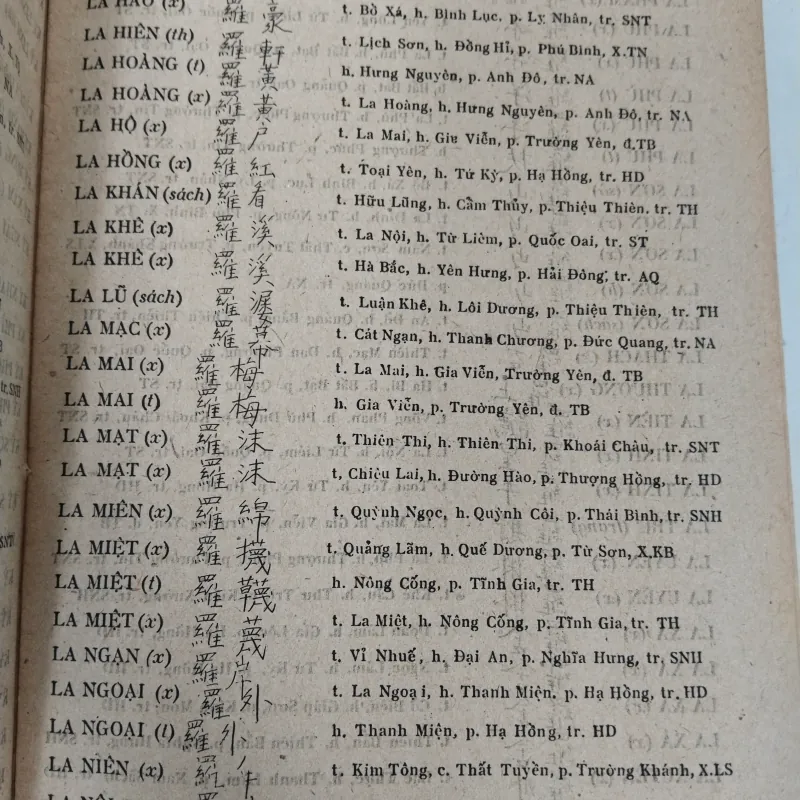 LA HÀO (x) 羅豪 t. Bồ Xá, h. Bình Lục, p. Lý Nhân, tr. SNT
LA HIÊN (th) 羅軒 t. Lịch Sơn, h. Đồng Hỉ, p. Phú Bình, X.TN
LA HOÀNG (t) 羅黃 h. Hưng Nguyên, p. Anh Đô, tr. NA
LA HOÀNG (x) 羅黃 t. La Hoàng, h. Hưng Nguyên, p. Anh Đô, tr. NA
LA HỘ (x) 羅户 t. La Mai, h. Gia Viễn, p. Trường Yên, đ.TB
LA HỒNG (x) 羅紅 t. Toại Yên, h. Tứ Kỳ, p. Hạ Hồng, tr. HD
LA KHÁN (sách) 羅看 t. Hữu Lũng, h. Cẩm Thủy, p. Thiệu Thiên. tr. TH
LA KHÊ (x) 羅溪 t. La Nội, h. Từ Liêm, p. Quốc Oai, tr. ST
LA KHÊ (x) 羅溪 t. Hà Bắc, h. Yên Hưng, p. Hải Đông, tr. AQ
LA LŨ (sách) 羅 t. Luận Khê, h. Lôi Dương, p. Thiệu Thiên, tr. TH
LA MẠC (x) 羅幕 t. Cát Ngạn, h. Thanh Chương, p. Đức Quang, tr. NA
LA MAI (x) 羅梅 t. La Mai, h. Gia Viễn, Trường Yên, đ. TB
LA MAI (t) 羅梅 h. Gia Viễn, p. Trường Yên, đ. TB
LA MẠT (x) 羅沫 t. Thiện Thi, h. Thiên Thi, p. Khoái Châu, tr. SNT
LA MẠT (x) 羅沫 t, Chiêu Lai, h. Đường Hào, p. Thượng Hồng, tr. HD
LA MIÊN (x) 羅綿 t. Quỳnh Ngọc, h. Quỳnh Côi, p. Thái Bình, tr. SNH
LA MIỆT (x) 羅 t. Quảng Lãm, h. Quế Dương, p. Từ Sơn, X.KB
LA MIỆT (t) 羅韈 h. Nông Cống, p. Tĩnh Gia, tr. TH
LA MIỆT (x) 羅蔑 t. La Miệt, h. Nông Cống, p. Tĩnh Gia, tr. TH
LA NGẠN (x) 羅岸 t. Vỉ Nhuế, h. Đại An, p. Nghĩa Hưng, tr. SNH
LA NGOẠI (x) 羅外 t. La Ngoại, h. Thanh Miện. p. Hạ Hồng, tr. HD
LA NGOẠI (t) 羅外 h. Thanh Miện, p. Hạ Hồng, tr. HD
LA NIÊN (x) 羅年 t. Kim Tông, c. Thất Tuyền, p. Trường Khánh, X.LS